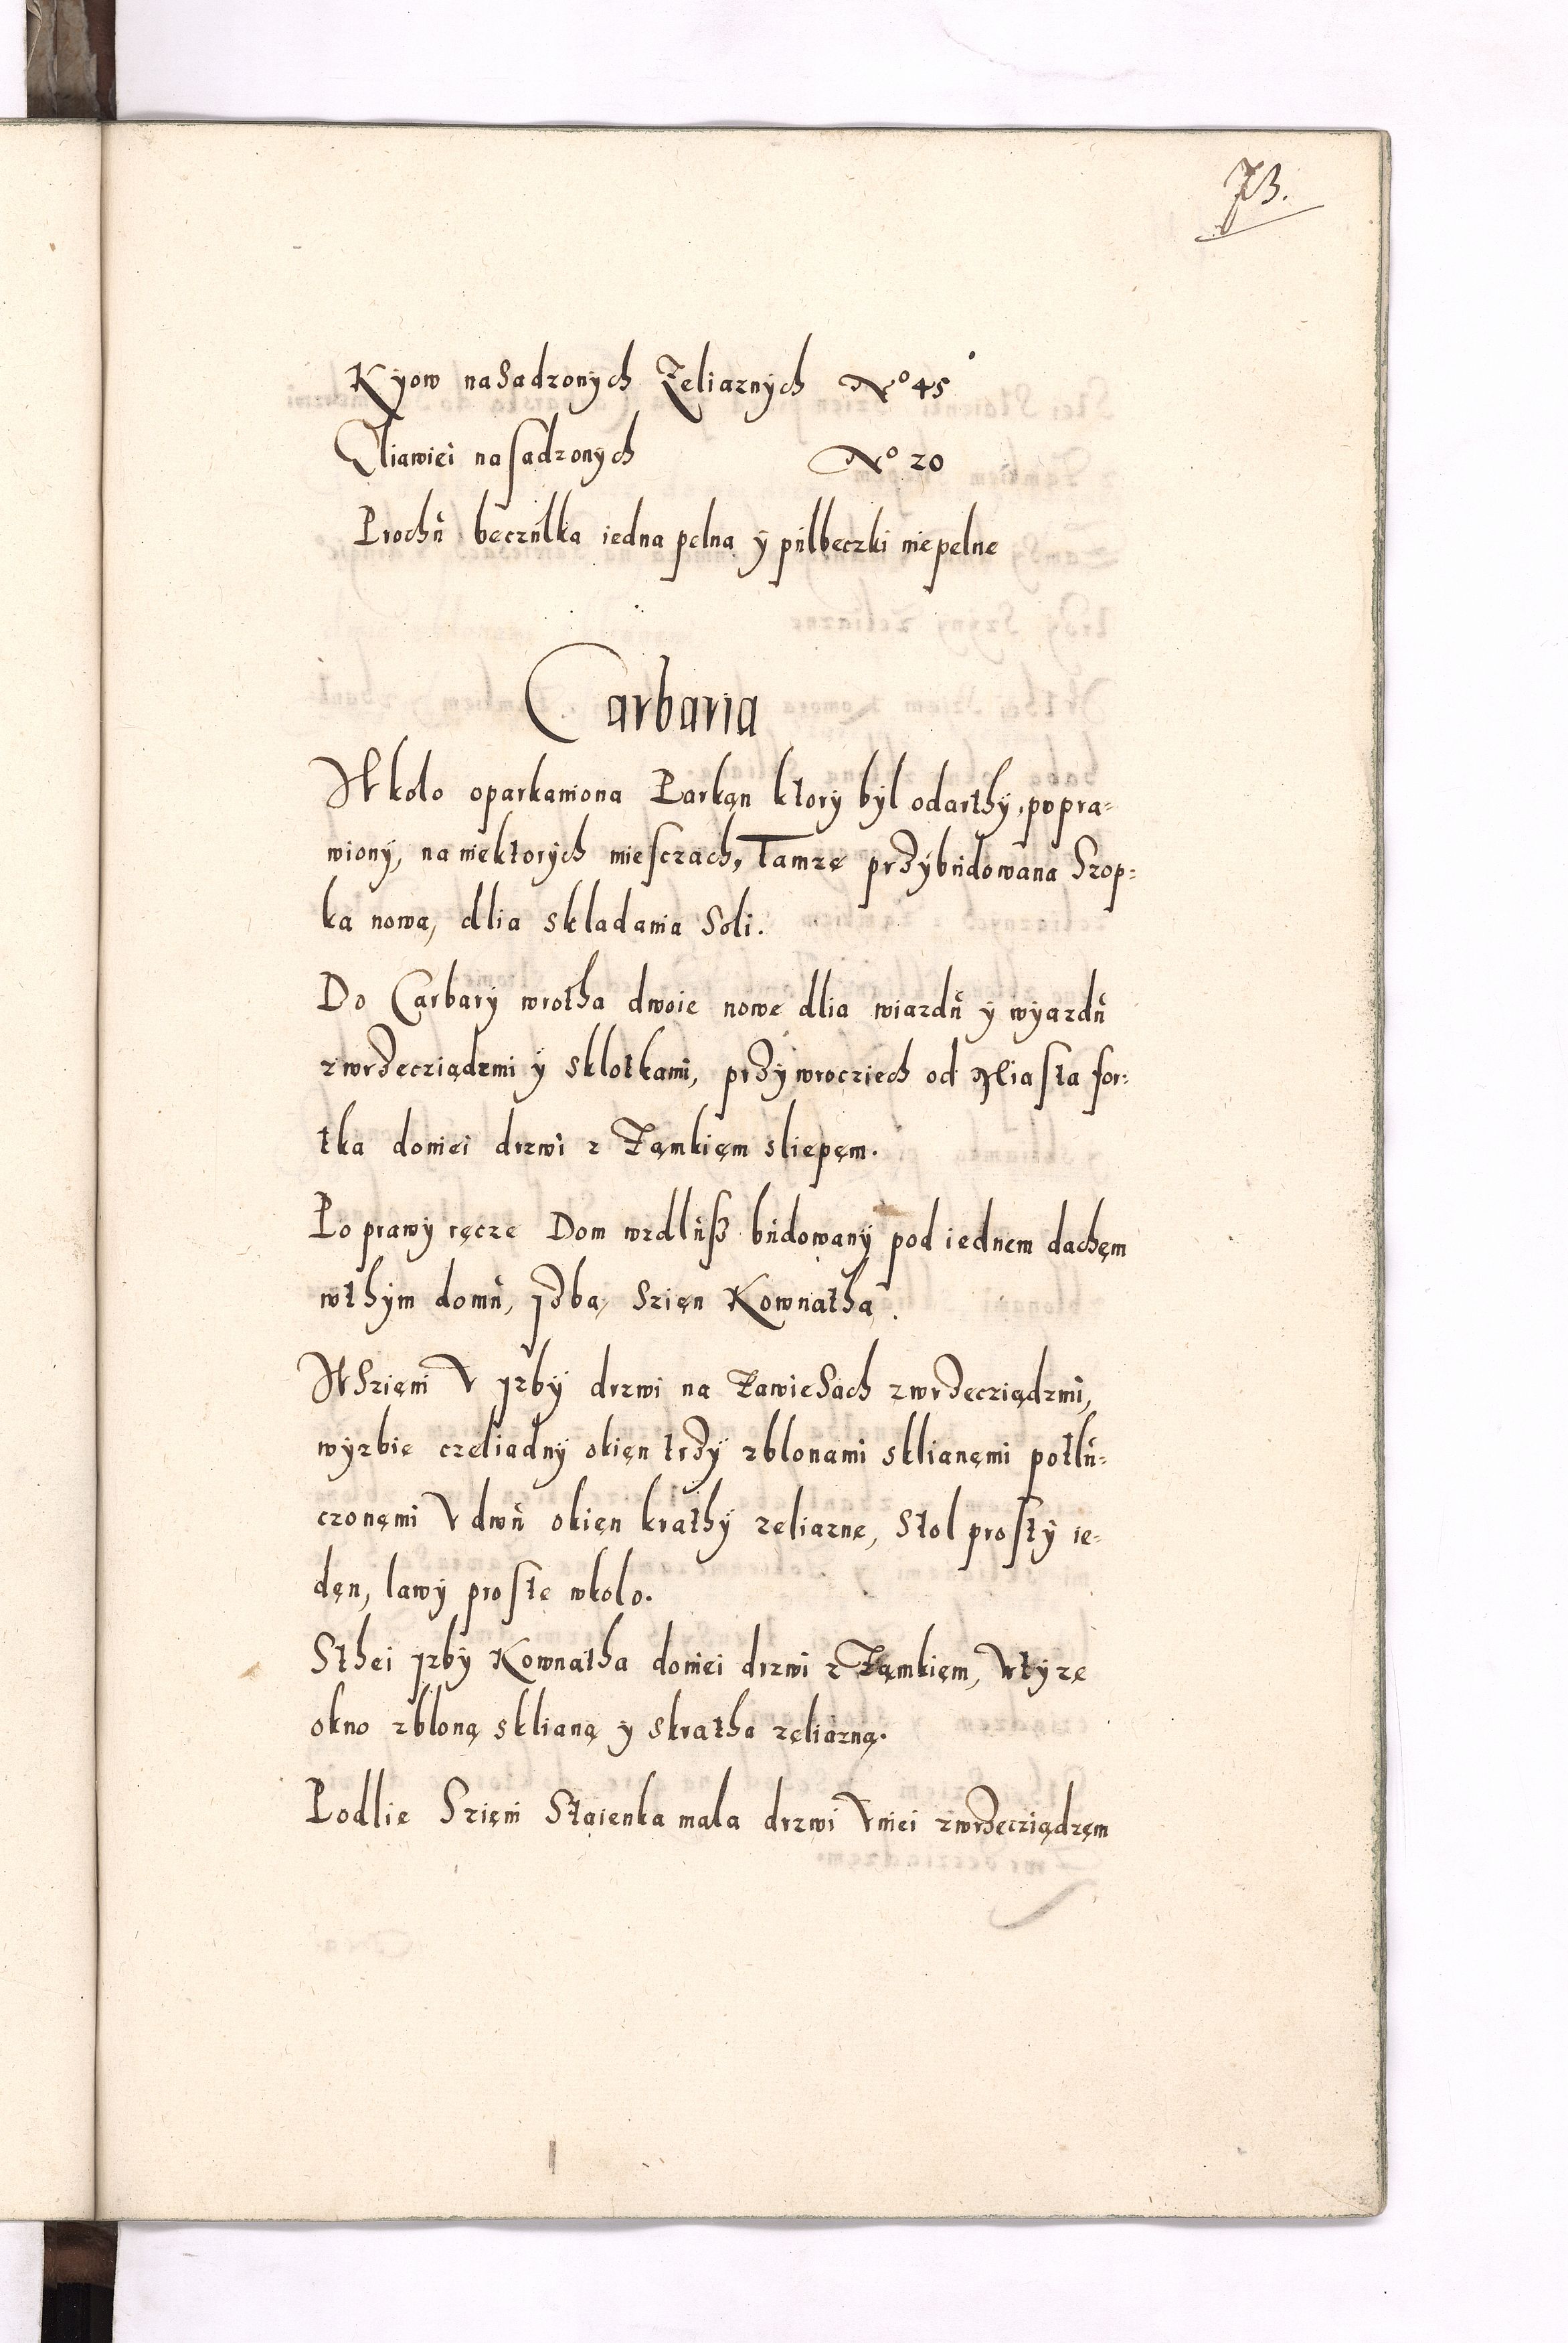 73.
Kÿow nasadzonÿch Zeliaznÿch No 45
Qliawiei nasadzonÿch No 20
Prochu beczulka iedna pelna ÿ pulbeczki niepelne
Carbaria
W kolo oparkaniona Parkąn ktorÿ bÿl odarthÿ, popra=
wionÿ, na niektorÿch miesczach, Tamze przÿbudowana Szop=
ka nowa, dlia skladania Soli.
Do Carbarÿ wrotha dwoie nowe dlia wiazdu ÿ wÿazdu
zwrzecziądzmi ÿ sklotkami, przÿ wrocziech od Miasta for=
tka doniei drzwi z Zamkięm sliepęm.
Po prawÿ ręcze Dom wzdlusz budowanÿ pod iednem dachęm
wthÿm domu, Izba, Szięn Kownatha.
W Szięni V Izbÿ drzwi na Zawiesach zwrzecziądzmi,
wÿzbie czeliadnÿ okięn trzÿ zblonami sklianęmi potlu=
czonęmi V dwu okięn krathÿ zeliazne, Stol prostÿ ie=
dęn, lawÿ proste wkolo.
Sthei Izbÿ Kownatha doniei drzwi z Zamkięm, Vtÿze
okno zbloną sklianą ÿ skratha zeliazną.
Podlie Szięni Staienka mala drzwi Vniei zwrzecziądzęm